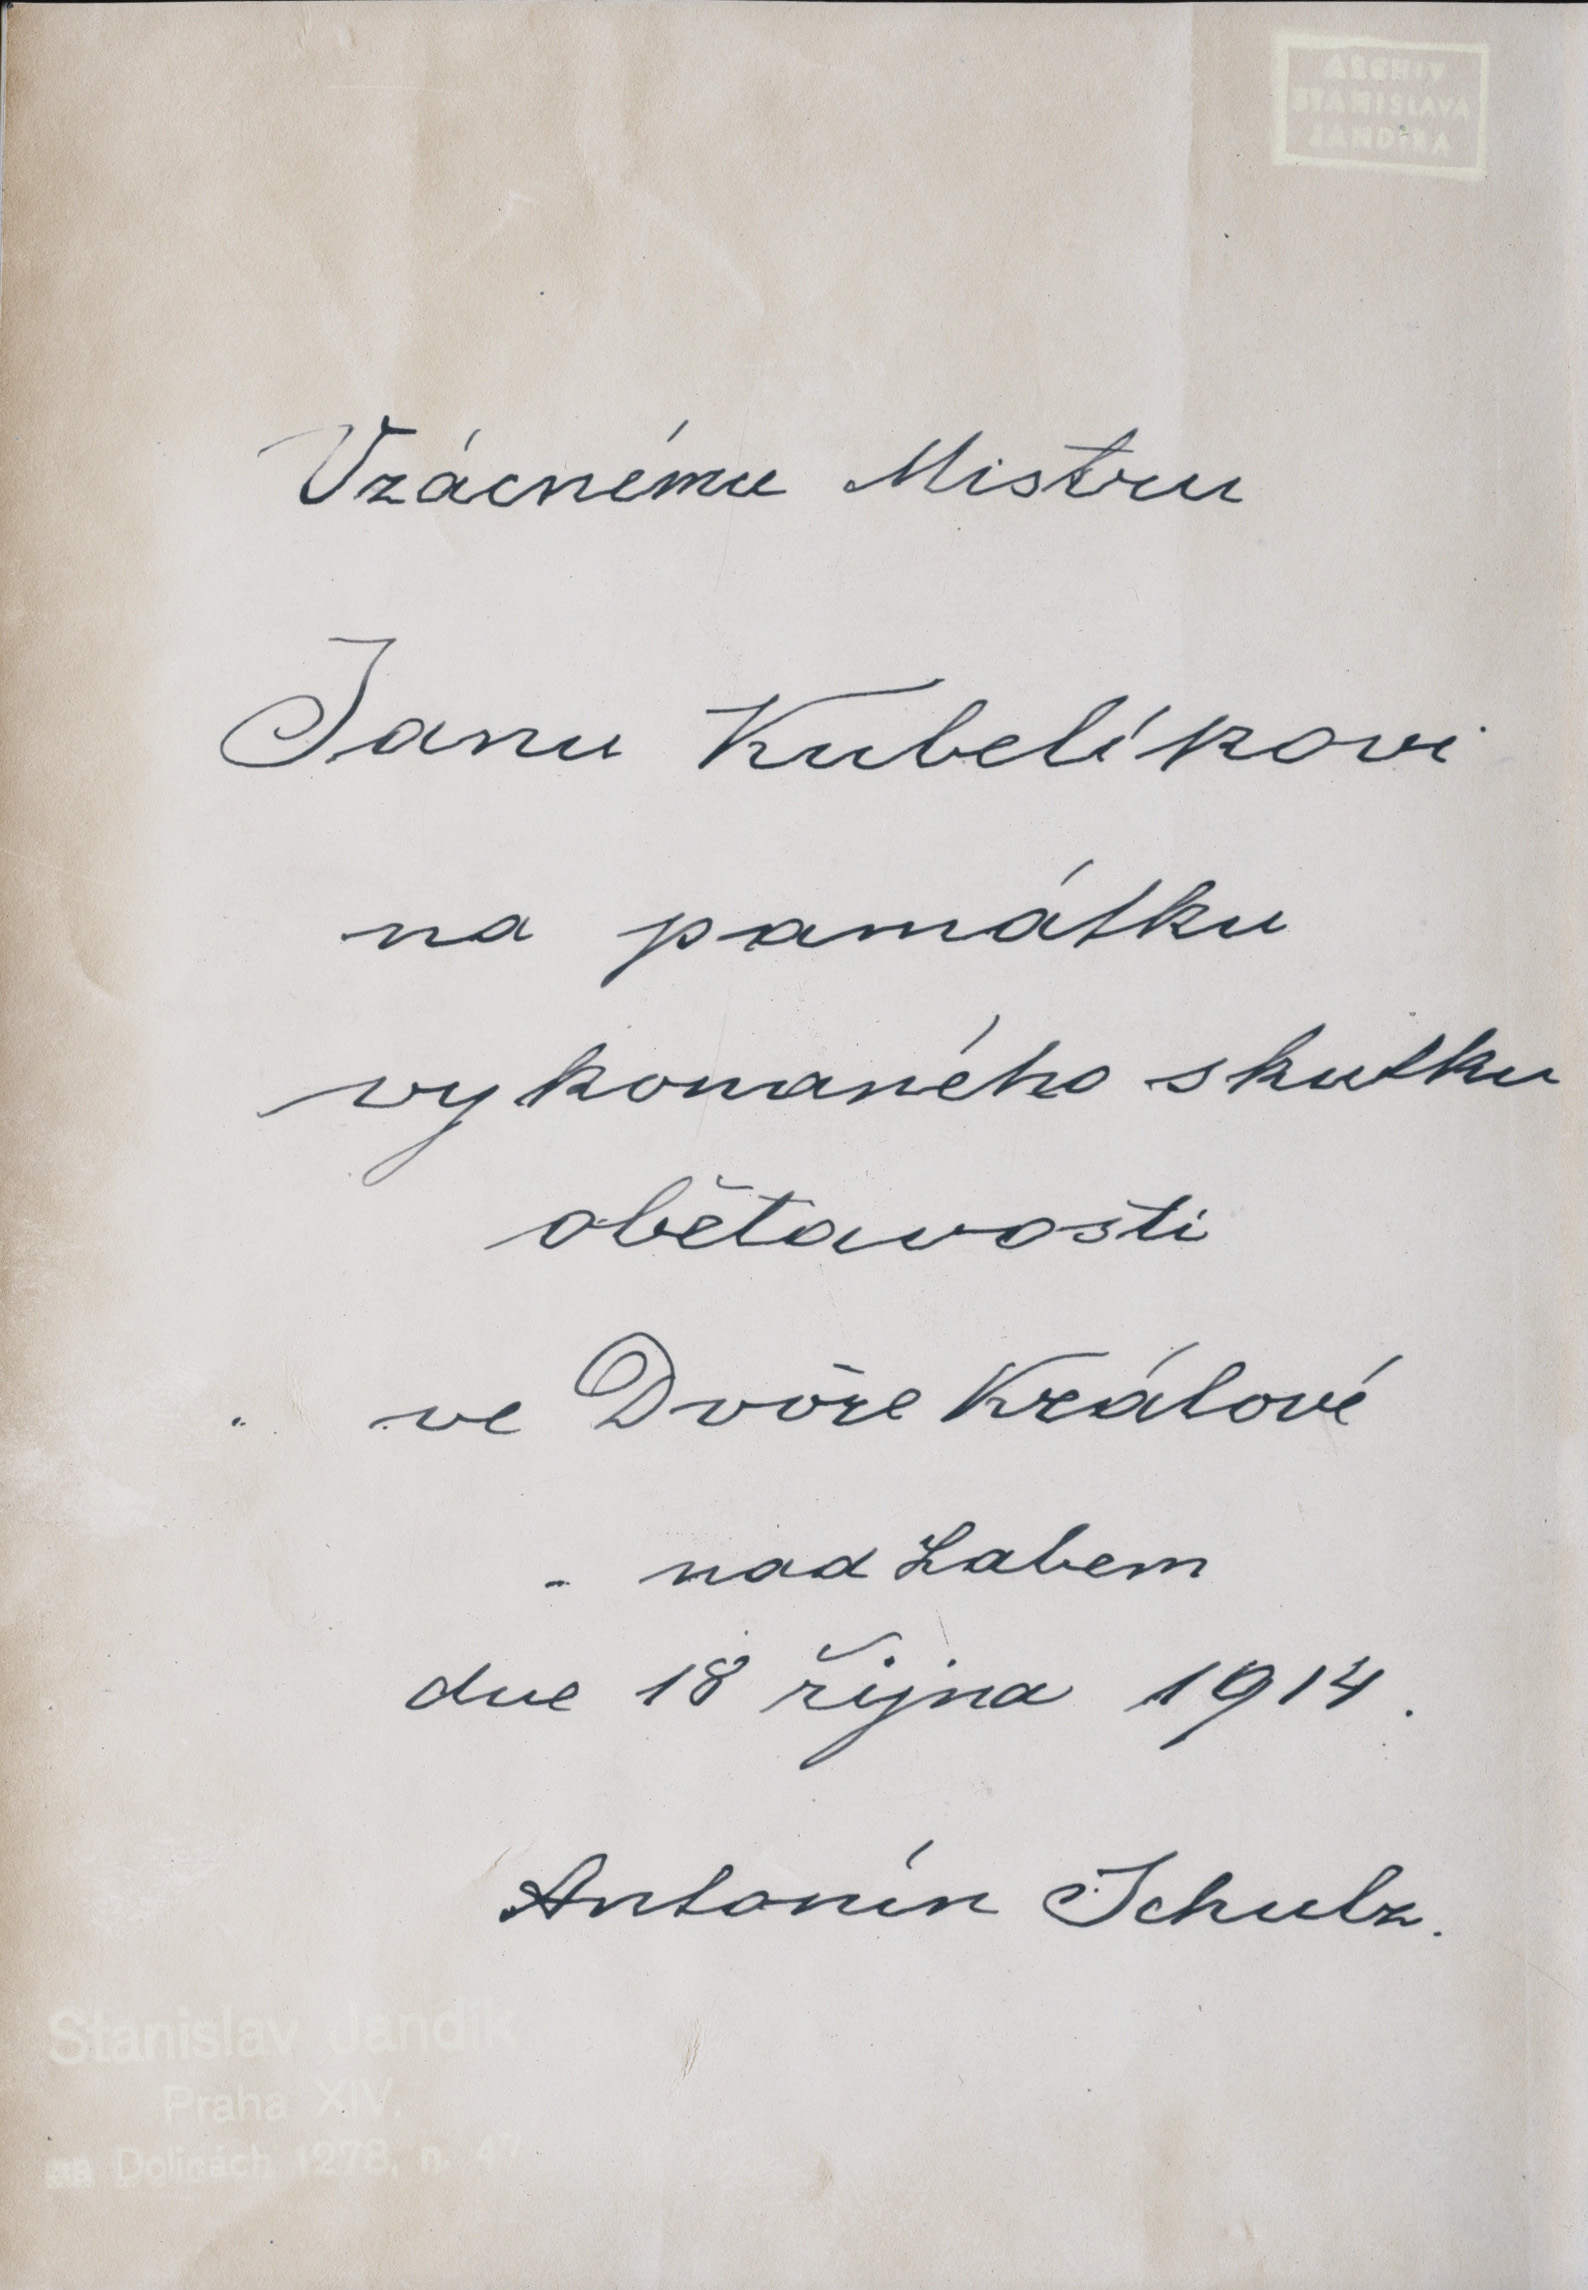 ARCHIV
STANISLAVA
JANDÍKA
Vzácnému Mistru
Janu Kubelíkovi
na památku
vykonaného skutku
obětavosti
ve Dvoře Králové
nad Labem
dne 18 října 1914.
Antonín Schulz.
Stanislav Jandík
Praha XIV.
na Dolinách 1278, n. 47